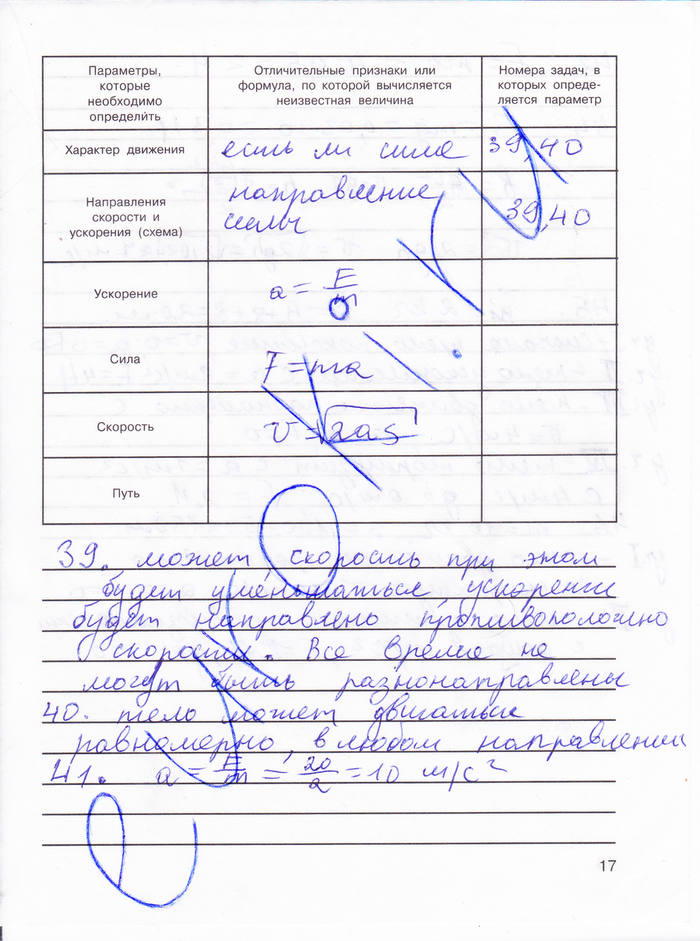 Параметры,
которые
необходимо
определить
Отличительные признаки или
формула, по которой вычисляется
неизвестная величина
Номера задач, в
которых опреде-
ляется параметр
Характер движения
есть ли сила
39, 40
Направления
скорости и
ускорения (схема)
направление
силы
39, 40
Ускорение
a = F/m
Сила
F = ma
Скорость
v = √2as
Путь
39. может, скорость при этом
будет уменьшаться, ускорение
будет направлено противоположно
скорости. Все время не
могут быть разнонаправлены
40. тело может двигаться
равномерно, в любом направлении
41. a = F/m = 20/2 = 10 м/с²
17